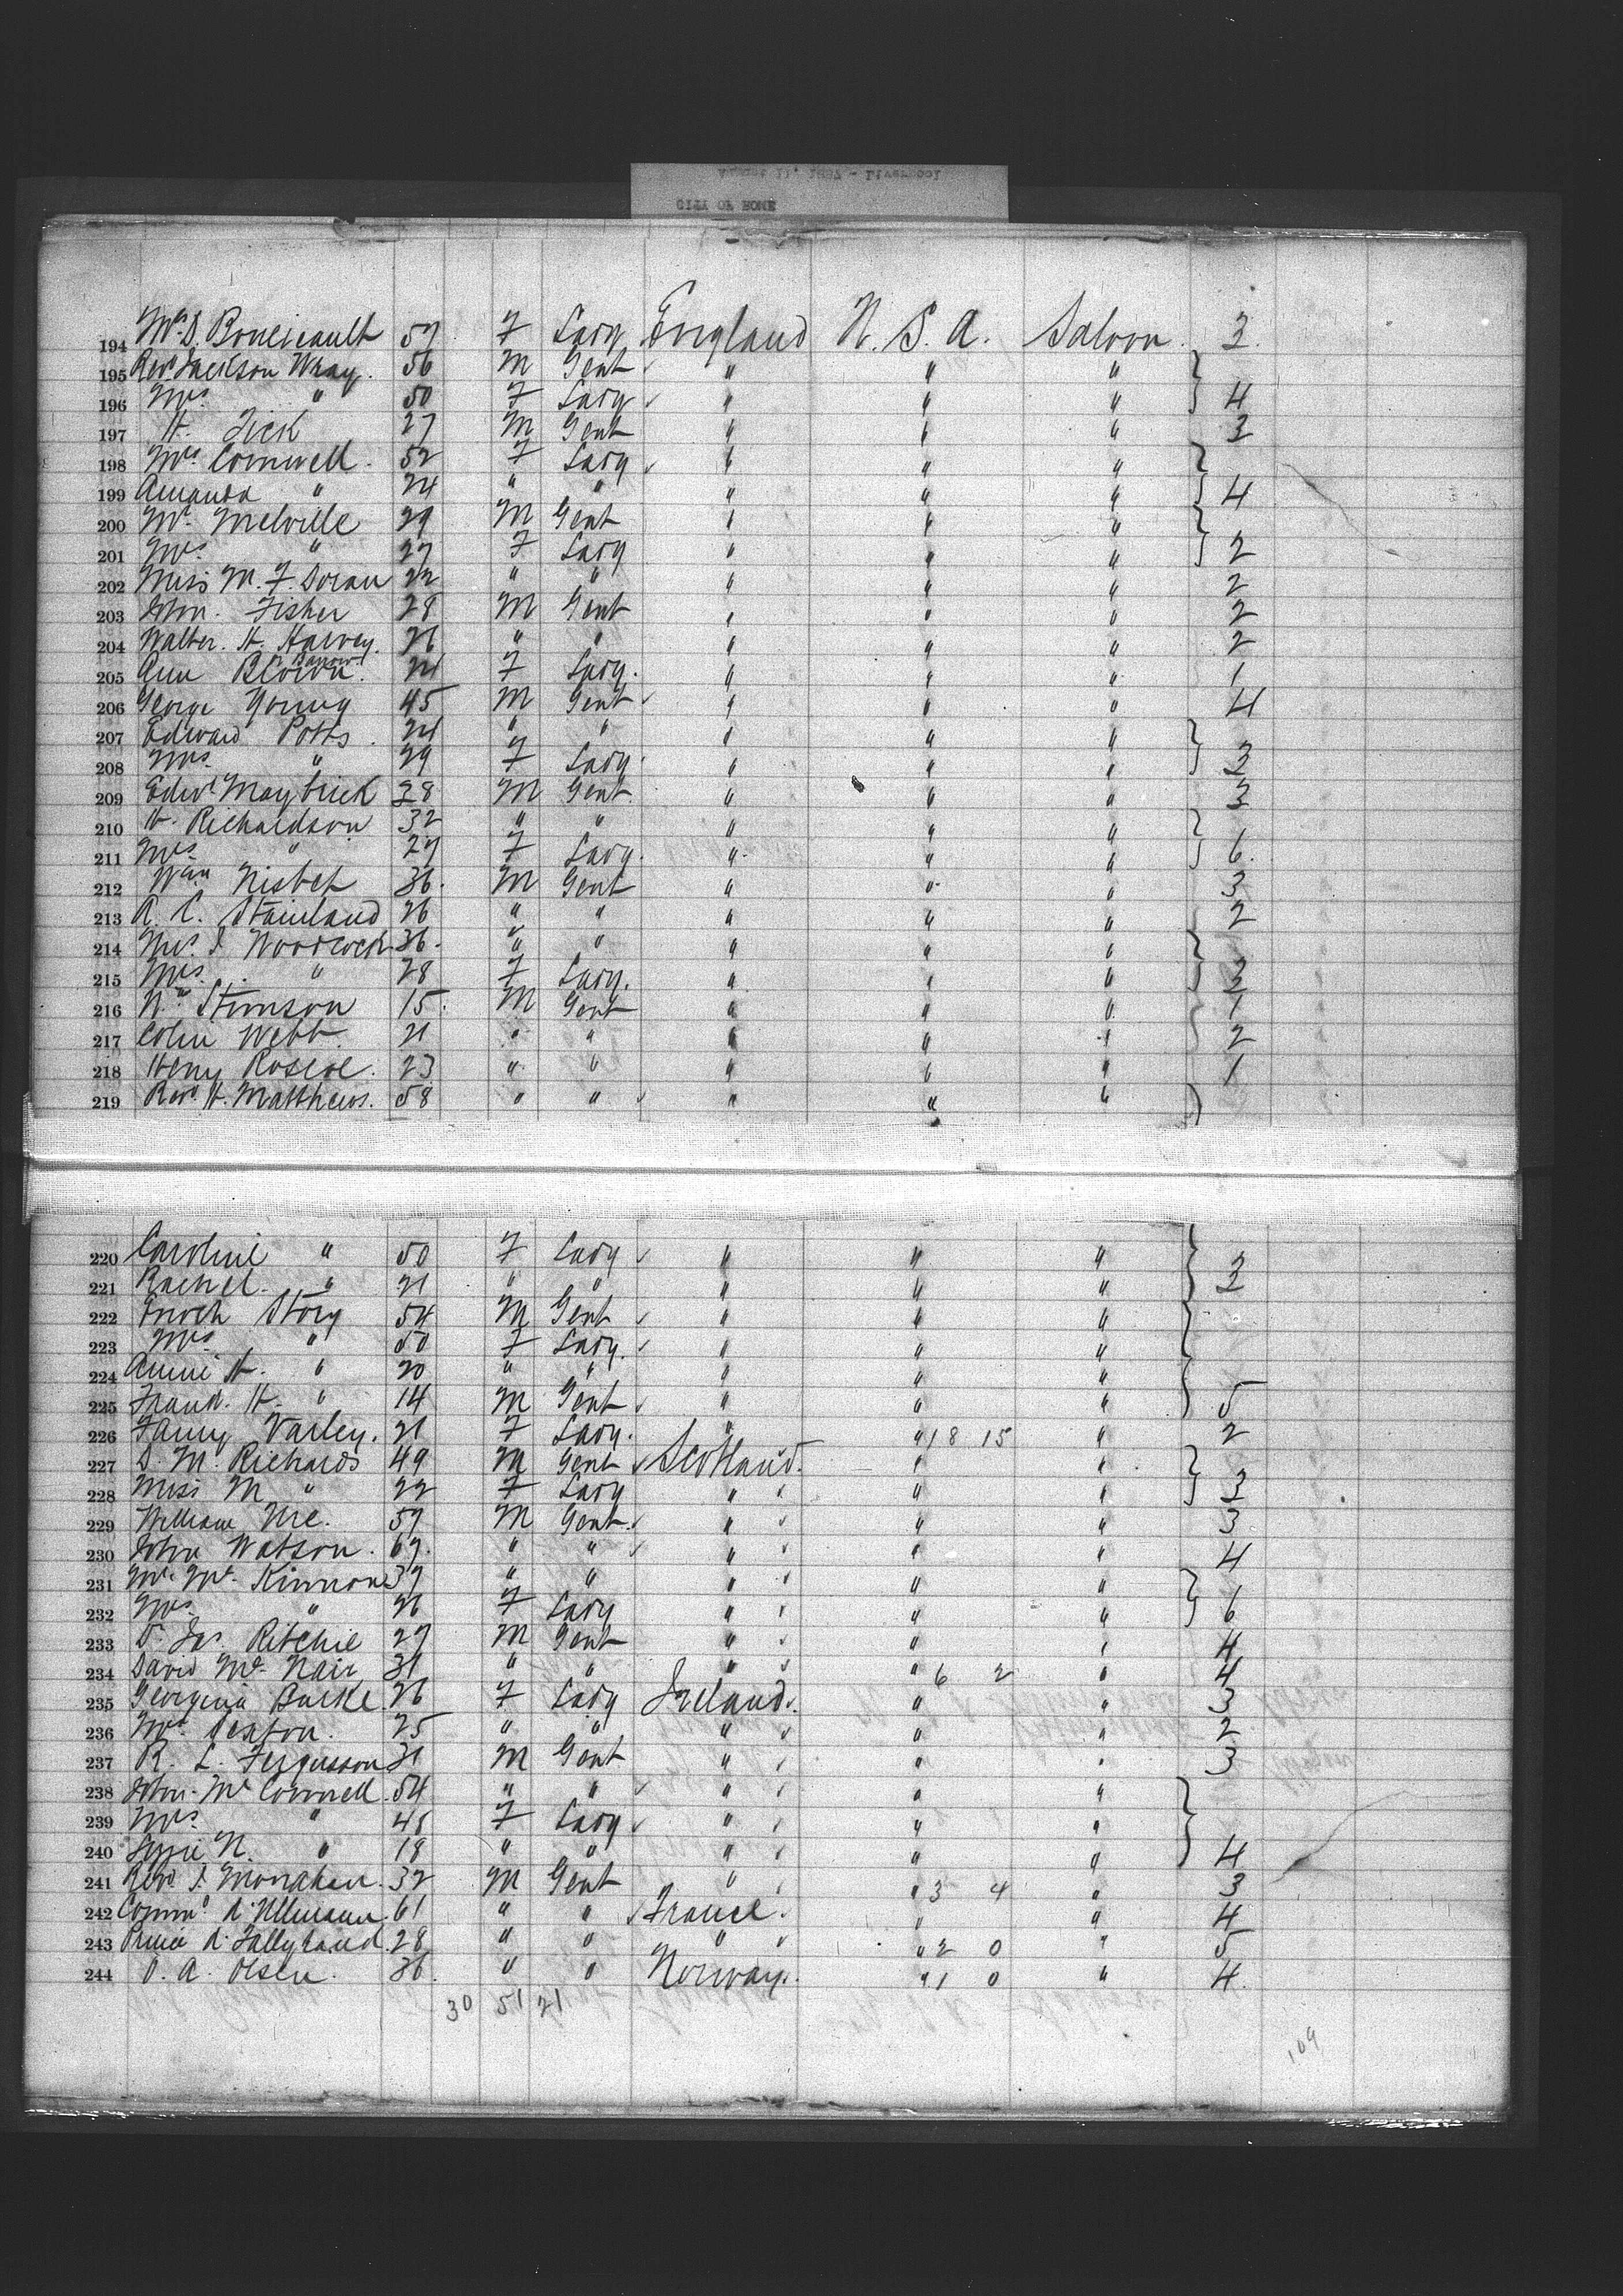 August 11, 1887 - Liverpool
CITY OF ROME
194 Mrs. D. Boucicault 57 F Lady England U. S. A. Saloon 3
195 Revd. Jackson Wray. 56 M Gent " " "
196 Mrs. " 50 F Lady " " " 4
197 H. Tick 27 M Gent " " " 3
198 Mrs. Cornwell. 52 F Lady " " "
199 Amanda " 24 " " " " " 4
200 Mr. Melville 29 M Gent " " "
201 Mrs. " 27 F Lady " " " 2
202 Miss M. F. Doran 22 " " " " " 2
203 John. Fisher 28 M Gent " " " 2
204 Walter. H. Harvey. 26 " " " " " 2
205 Ann Brown. 24 F Lady. " " " 1
206 George Young 45 M Gent " " " 4
207 Edward Potts 24 " " " " "
208 Mrs. " 29 F Lady " " " 3
209 Edwd. Maybrick 38 M Gent. " " " 3
210 H. Richardson 32 " " " " "
211 Mrs. " 27 F Lady. " " " 6.
212 Wm. Nisbet 36. M Gent " " " 3
213 A. C. Stainland 26 " " " " " 2
214 J. Woodcock 36. " " " " "
215 Mrs. " 28 F Lady. " " " 3
216 Wm. Stimson 15. M Gent " " " 1
217 Colin Webb. 21 " " " " " 2
218 Henry Roscoe. 23 " " " " " 1
219 Revd. H. Matthews. 58 " " " " "
220 Caroline " 50 F Lady " " "
221 Rachel. " 21 " " " " " 3
222 Enoch Story 54 M Gent " " "
223 Mrs. " 50 F Lady. " " "
224 Annie H. " 20 " " " " "
225 Frank. H. " 14 M Gent " " " 5
226 Fanny Varley. 21 F Lady. " " 18 15 " 2
227 D. M. Richards 49 M Gent Scotland. " "
228 Miss M " 22 F Lady " " " 3
229 William Ure. 57 M Gent. " " " 3
230 John Watson. 67. " " " " " 4
231 Mr. Mc. Kinnon 37 " " " " "
232 Mrs. " 26 F Lady " " " 6
233 Dr. Jas. Ritchie 27 M Gent " " " 4
234 David Mc. Nair 31 " " " " 6 2 " 4
235 Georgina Burke. 26 F Lady Ireland. " " 3
236 25 " " " " " 2
237 R. L. Fergusson 31 M Gent " " " 3
238 John. Mc Connell. 54 " " " " "
239 Mrs. " 45 F Lady " " "
240 Lizzie N. " 18 " " " " " 4
241 Revd. J. Monahan. 32 M Gent " " 3 4 " 3
242 Commr. d. Ullmann. 61 " " France. " " 4
243 Prince d. Tallyrand. 28 " " " " 2 0 " 5
244 O. A. Olsen. 36. " " Norway. " 1 0 " 4.
30 51 21
109